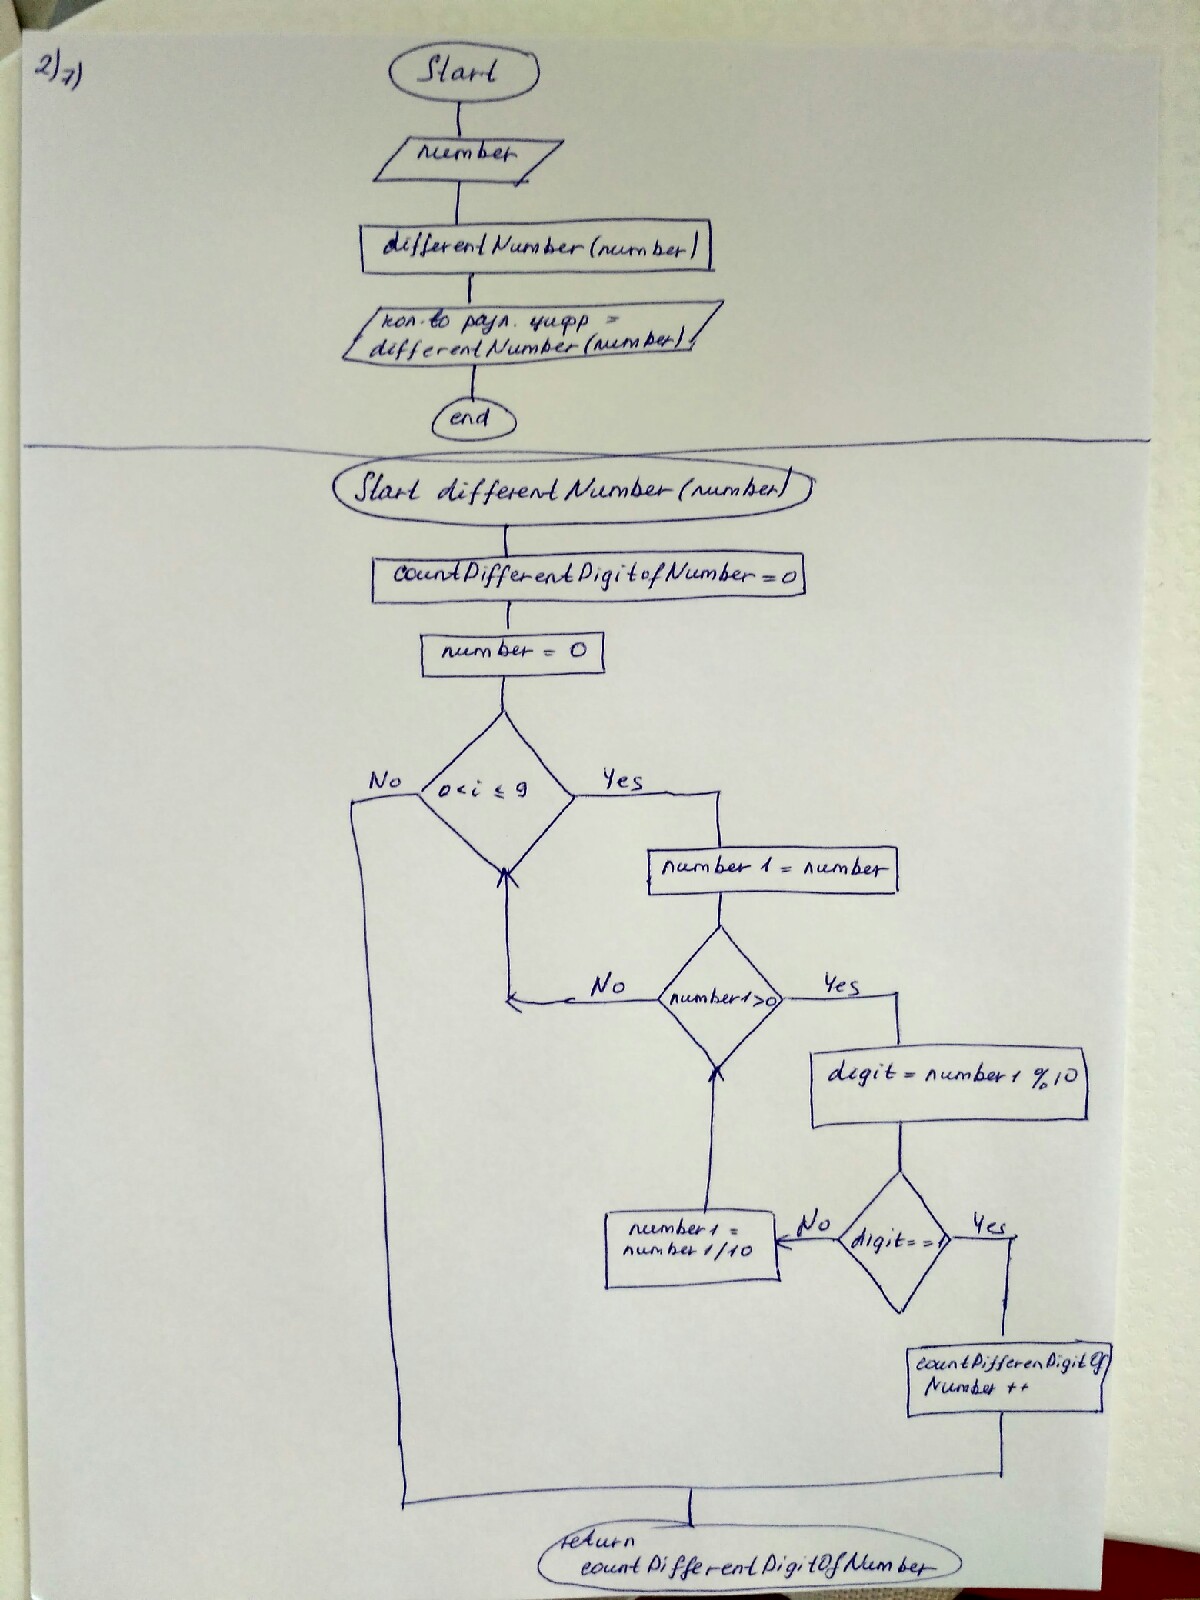 2) 7)
Start
number
differentNumber(number)
кол.во разл. цифр =
differentNumber(number)
end
Start differentNumber(number)
countDifferentDigitofNumber = 0
number = 0
No
0 < i ≤ 9
Yes
number 1 = number
No
number1>0
Yes
digit = number1 % 10
number1 =
number1/10
No
digit==1
Yes
countDifferenDigitOf
Number ++
return
countDifferentDigitOfNumber